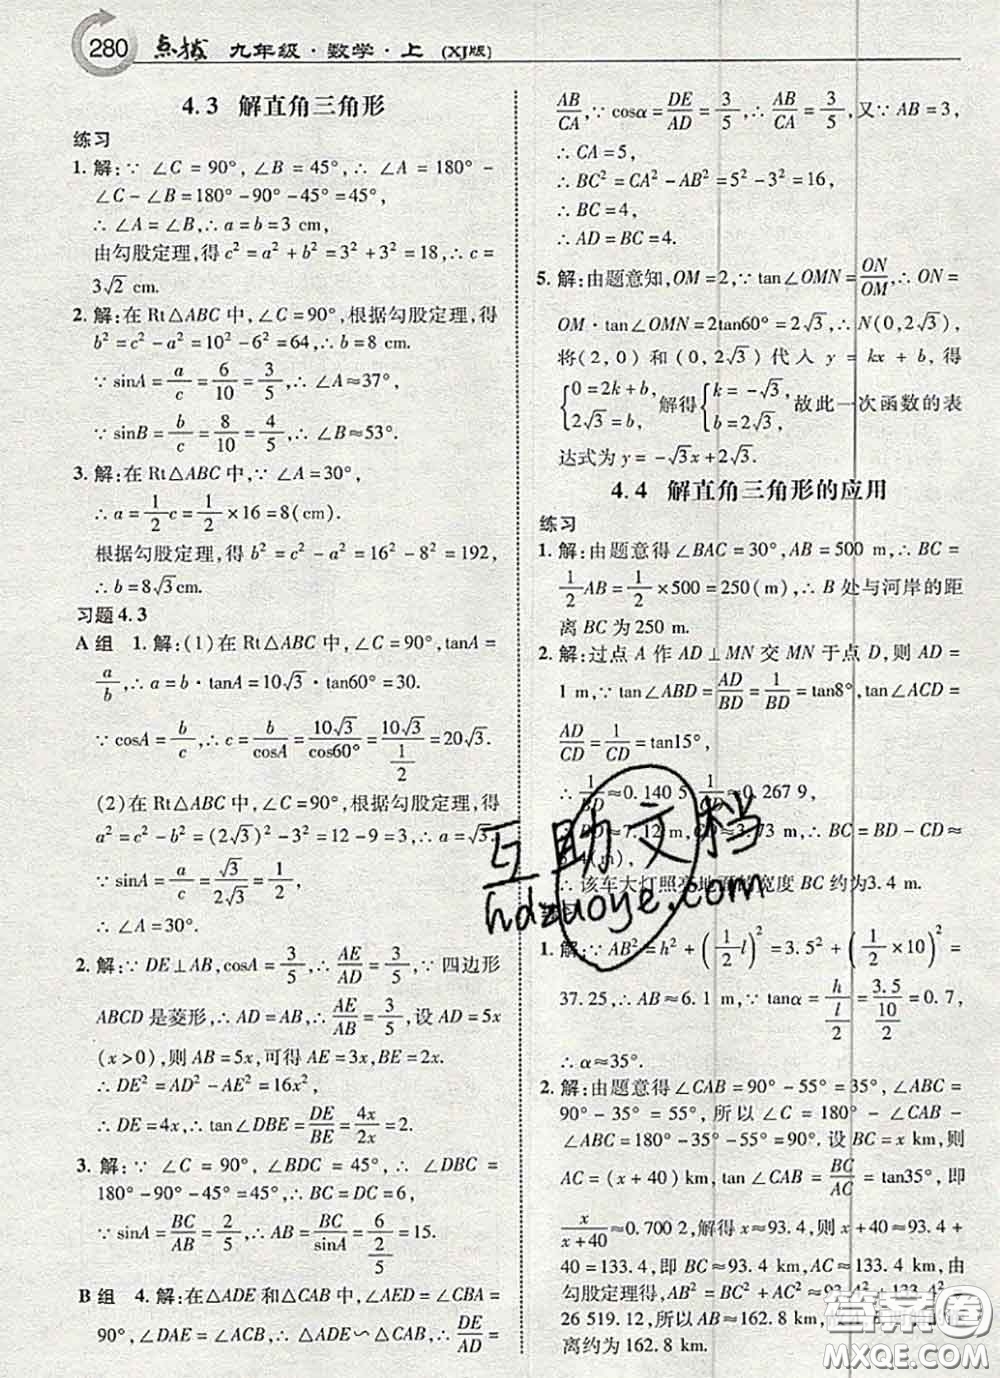 280 点拨 九年级·数学·上 (XJ版)
4.3 解直角三角形
练习
1. 解:∵ ∠C = 90°, ∠B = 45°, ∴ ∠A = 180° -
∠C - ∠B = 180° - 90° - 45° = 45°,
∴ ∠A = ∠B, ∴ a = b = 3 cm,
由勾股定理,得 c² = a² + b² = 3² + 3² = 18, ∴ c =
3√2 cm.
2. 解:在 Rt△ABC 中, ∠C = 90°, 根据勾股定理,得
b² = c² - a² = 10² - 6² = 64, ∴ b = 8 cm.
∵ sinA = a/c = 6/10 = 3/5, ∴ ∠A≈37°,
∵ sinB = b/c = 8/10 = 4/5, ∴ ∠B≈53°.
3. 解:在 Rt△ABC 中, ∵ ∠A = 30°,
∴ a = 1/2 c = 1/2 × 16 = 8(cm).
根据勾股定理,得 b² = c² - a² = 16² - 8² = 192,
∴ b = 8√3cm.
习题 4.3
A 组 1. 解:(1)在 Rt△ABC 中, ∠C = 90°, tanA =
a/b, ∴ a = b·tanA = 10√3·tan60° = 30.
∵ cosA = b/c, ∴ c = b/cosA = 10√3/cos60° = 10√3/(1/2) = 20√3.
(2)在 Rt△ABC 中, ∠C = 90°, 根据勾股定理,得
a² = c² - b² = (2√3)² - 3² = 12 - 9 = 3, ∴ a = √3.
∵ sinA = a/c = √3/2√3 = 1/2,
∴ ∠A = 30°.
2. 解:∵ DE⊥AB, cosA = 3/5, ∴ AE/AD = 3/5, ∵ 四边形
ABCD 是菱形, ∴ AD = AB, ∴ AE/AB = 3/5, 设 AD = 5x
(x > 0), 则 AB = 5x, 可得 AE = 3x, BE = 2x.
∴ DE² = AD² - AE² = 16x²,
∴ DE = 4x, ∴ tan∠DBE = DE/BE = 4x/2x = 2.
3. 解:∵ ∠C = 90°, ∠BDC = 45°, ∴ ∠DBC =
180° - 90° - 45° = 45°, ∴ BC = DC = 6,
∵ sinA = BC/AB = 2/5, ∴ AB = BC/sinA = 6/(2/5) = 15.
B 组 4. 解:在△ADE 和△CAB 中, ∠AED = ∠CBA =
90°, ∠DAE = ∠ACB, ∴ △ADE∽△CAB, ∴ DE/AD =
AB/CA, ∵ cosα = DE/AD = 3/5, ∴ AB/CA = 3/5, 又∵ AB = 3,
∴ CA = 5,
∴ BC² = CA² - AB² = 5² - 3² = 16,
∴ BC = 4,
∴ AD = BC = 4.
5. 解:由题意知, OM = 2, ∵ tan∠OMN = ON/OM, ∴ ON =
OM·tan∠OMN = 2tan60° = 2√3, ∴ N(0, 2√3),
将(2, 0) 和 (0, 2√3) 代人 y = kx + b, 得
{0 = 2k + b, 2√3 = b, 解得 {k = -√3, b = 2√3, 故此一次函数的表
达式为 y = -√3x + 2√3.
4.4 解直角三角形的应用
练习
1. 解:由题意得∠BAC = 30°, AB = 500 m, ∴ BC =
1/2 AB = 1/2 × 500 = 250(m), ∴ B 处与河岸的距
离 BC 为 250 m.
2. 解:过点 A 作 AD⊥MN 交 MN 于点 D, 则 AD =
1 m, ∵ tan∠ABD = AD/BD = 1/BD = tan8°, tan∠ACD =
AD/CD = 1/CD = tan15°,
∴ 1/BD ≈ 0.140 5, 1/CD ≈ 0.267 9,
∴ BD≈7.12 m, CD≈3.73 m, ∴ BC = BD - CD≈
3.4(m),
∴ 该车大灯照亮地面的宽度 BC 约为3.4 m.
练习
1. 解:∵ AB² = h² + (1/2 l)² = 3.5² + (1/2 × 10)² =
37.25, ∴ AB≈6.1 m, ∵ tanα = h/(l/2) = 3.5/(10/2) = 0.7,
∴ α≈35°.
2. 解:由题意得∠CAB = 90° - 55° = 35°, ∠ABC =
90° - 35° = 55°, 所以∠C = 180° - ∠CAB -
∠ABC = 180° - 35° - 55° = 90°. 设 BC = x km, 则
AC = (x + 40) km, tan∠CAB = BC/AC = tan35°, 即
x/(x+40) ≈ 0.700 2, 解得 x≈93.4, 则 x + 40≈93.4 +
40 = 133.4, 即 BC≈93.4 km, AC≈133.4 km, 由
勾股定理得, AB² = BC² + AC² ≈ 93.4² + 133.4² =
26 519.12, 所以 AB≈162.8 km, 所以
离约为 162.8 km.
互助文档
hdzuoye.com
答案圈
MXQE.COM